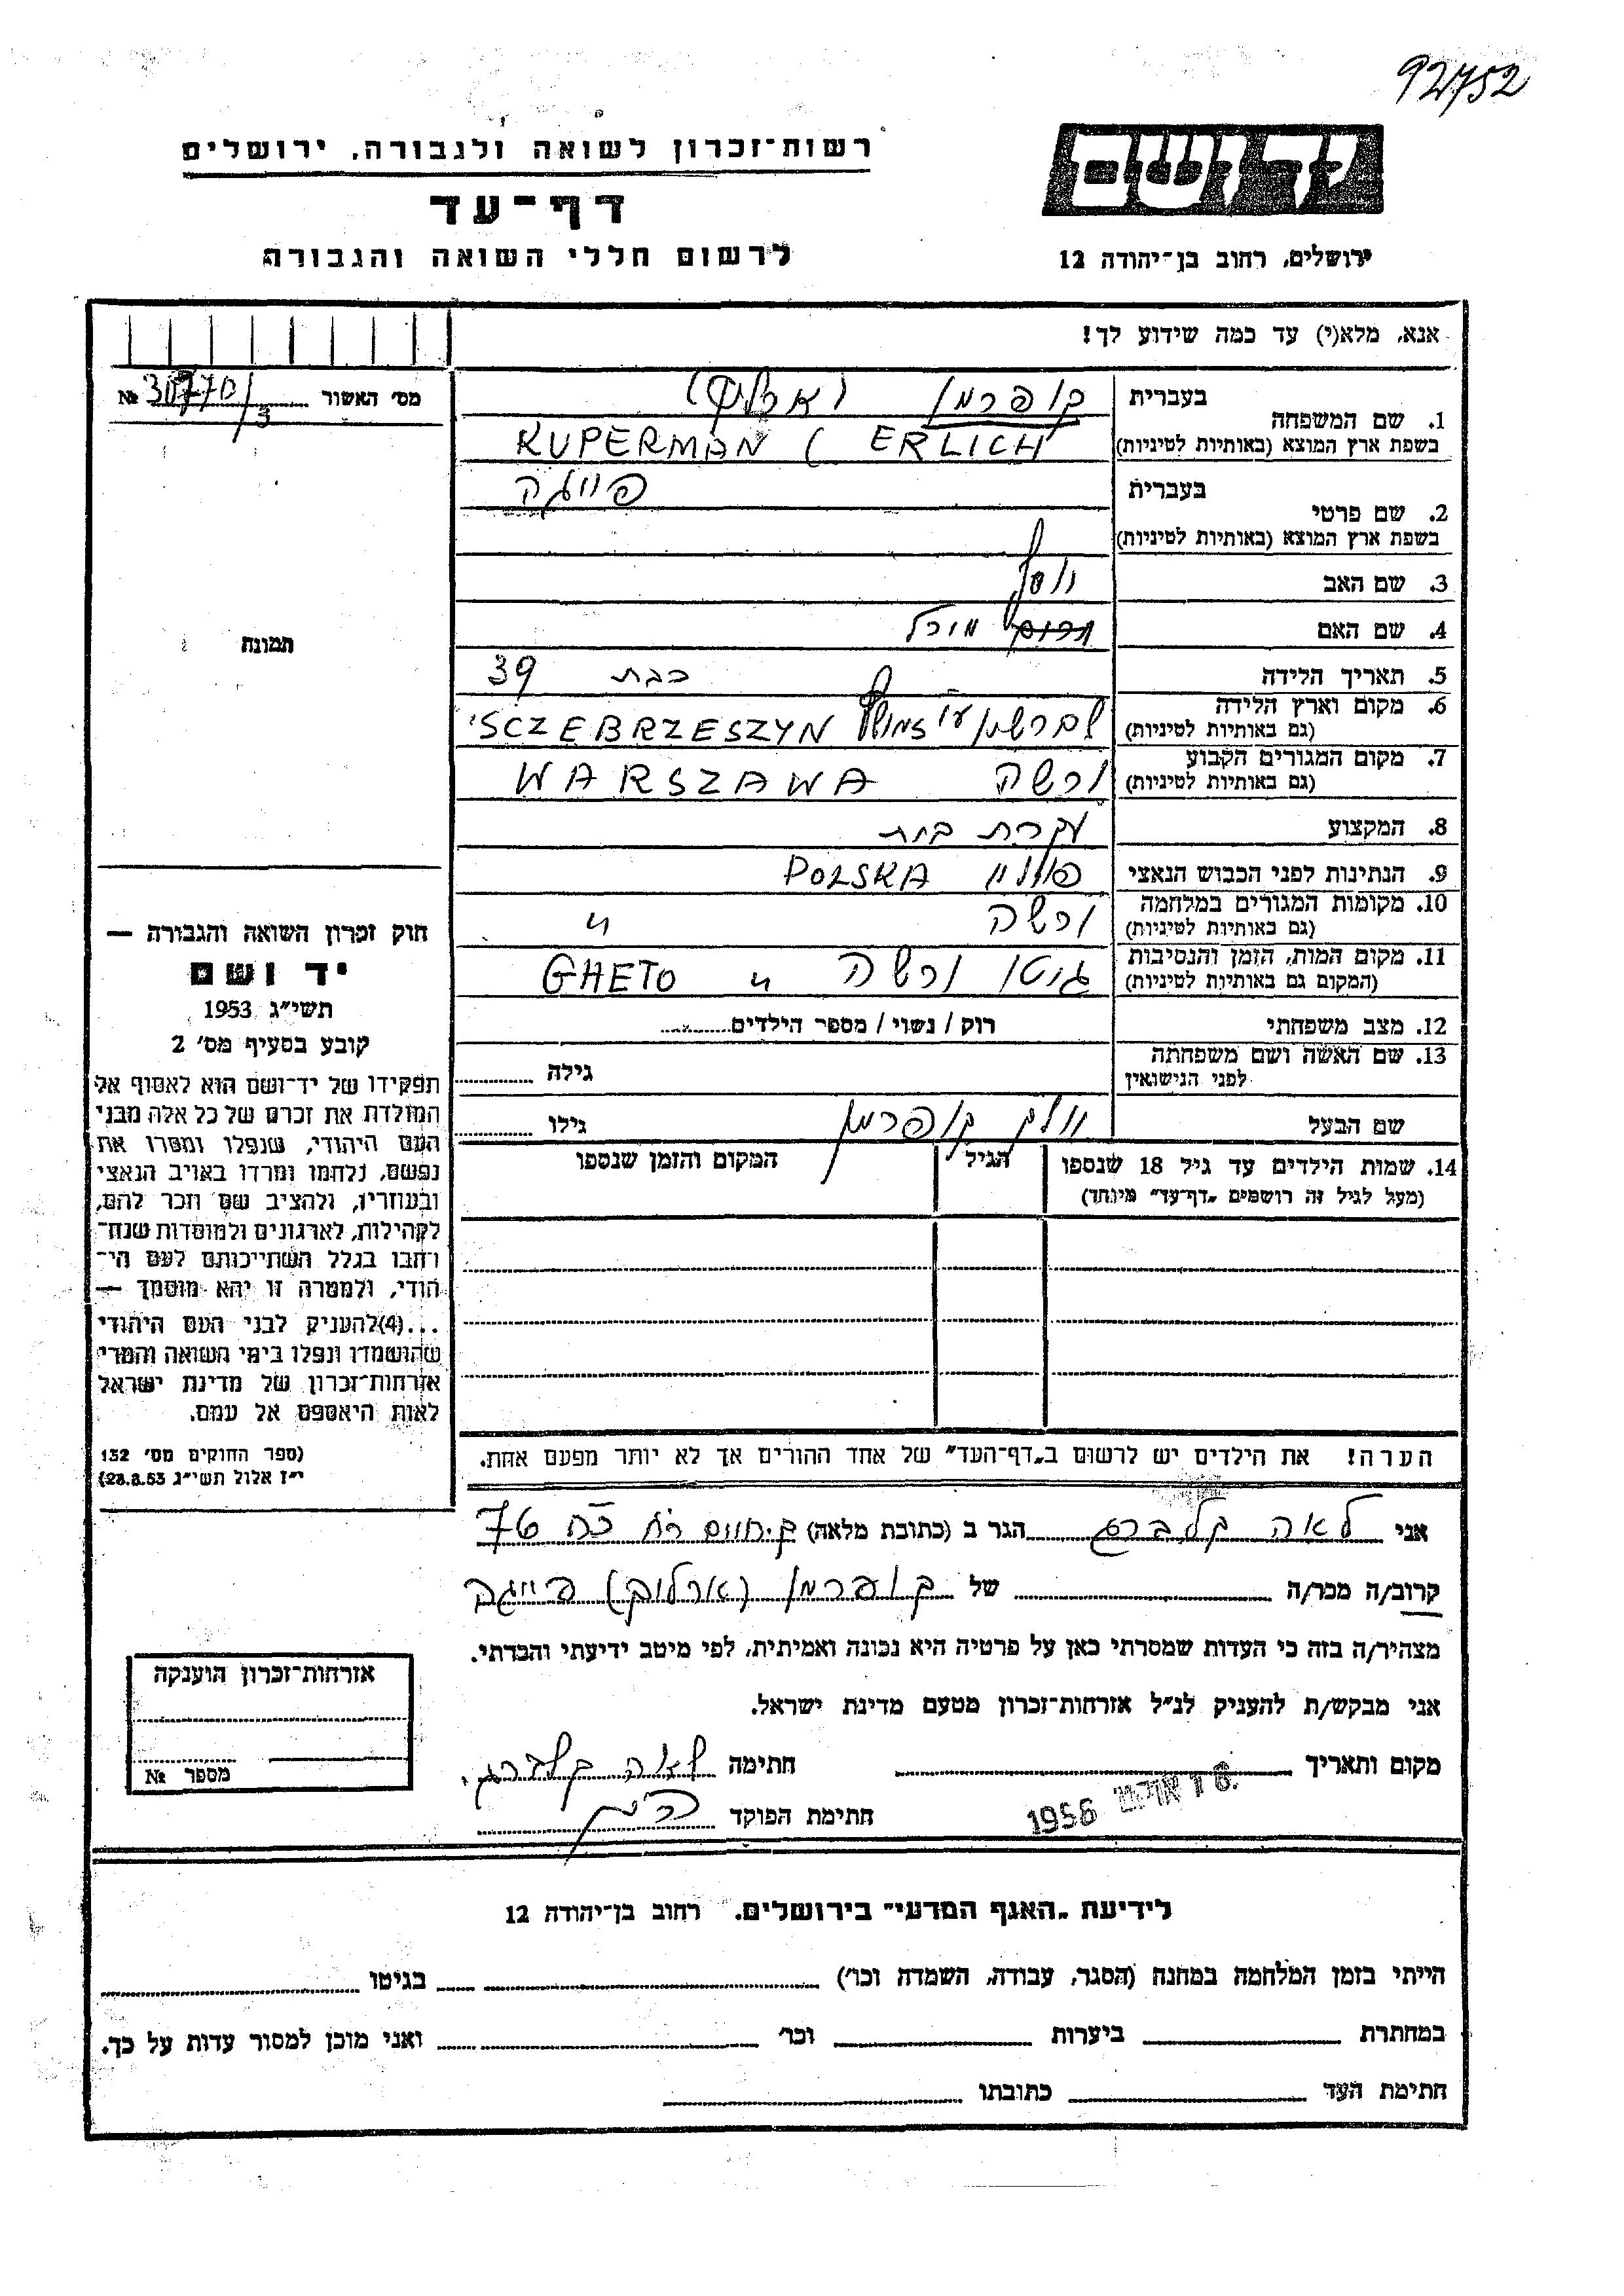 92752
רשות-זכרון לשואה ולגבורה, ירושלים
דף-עד
לרשום חללי השואה והגבורה
ירושלים, רחוב בן-יהודה 12
אנא, מלא(י) עד כמה שידוע לך!
מס' האשור № 30770/3
תמונה
1. שם המשפחה בעברית קופרמן (ארליך)
בשפת ארץ המוצא (באותיות לטיניות) KUPERMAN ( ERLICH
2. שם פרטי בעברית פייגה
בשפת ארץ המוצא (באותיות לטיניות)
3. שם האב יוסף
4. שם האם מירל
5. תאריך הלידה כבת 39
6. מקום וארץ הלידה
(גם באותיות לטיניות) שברשין ע"י זמושץ SCZEBRZESZYN
7. מקום המגורים הקבוע
(גם באותיות לטיניות) ורשה WARSZAWA
8. המקצוע עקרת בית
9. הנתינות לפני הכבוש הנאצי פולין POLSKA
10. מקומות המגורים במלחמה
(גם באותיות לטיניות) ורשה "
11. מקום המות, הזמן והנסיבות
(המקום גם באותיות לטיניות) גיטו ורשה " GHETO
12. מצב משפחתי רוק / נשוי / מספר הילדים
13. שם האשה ושם משפחתה
לפני הנישואין גילה
שם הבעל וולף קופרמן גילו
14. שמות הילדים עד גיל 18 שנספו הגיל המקום והזמן שנספו
(מעל לגיל זה רושמים "דף-עד" מיוחד)
הערה! את הילדים יש לרשום ב"דף-העד" של אחד ההורים אך לא יותר מפעם אחת.
חוק זכרון השואה והגבורה —
יד ושם
תשי"ג 1953
קובע בסעיף מס' 2
תפקידו של יד-ושם הוא לאסוף אל
המולדת את זכרם של כל אלה מבני
העם היהודי, שנפלו ומסרו את
נפשם, נלחמו ומרדו באויב הנאצי
ובעוזריו, ולהציב שם וזכר להם,
לקהילות, לארגונים ולמוסדות שנח-
רבו בגלל השתייכותם לעם הי-
הודי, ולמטרה זו יהא מוסמך —
...(4)להעניק לבני העם היהודי
שהושמדו ונפלו בימי השואה והמרי
אזרחות-זכרון של מדינת ישראל
לאות היאספם אל עמם.
(ספר החוקים מס' 132
י"ז אלול תשי"ג 28.8.53)
אני לאה הגר ב (כתובת מלאה) ק. חיים 76
קרוב/ה מכר/ה של קופרמן (ארליך) פייגה
מצהיר/ה בזה כי העדות שמסרתי כאן על פרטיה היא נכונה ואמיתית, לפי מיטב ידיעתי והכרתי.
אני מבקש/ת להעניק לנ"ל אזרחות-זכרון מטעם מדינת ישראל.
מקום ותאריך 1956 חתימה לאה
חתימת הפוקד
אזרחות-זכרון הוענקה
מספר №
לידיעת "האגף המדעי" בירושלים. רחוב בן-יהודה 12
הייתי בזמן המלחמה במחנה (הסגר, עבודה, השמדה וכו') בגיטו
במחתרת ביערות וכו' ואני מוכן למסור עדות על כך.
חתימת העד כתובתו